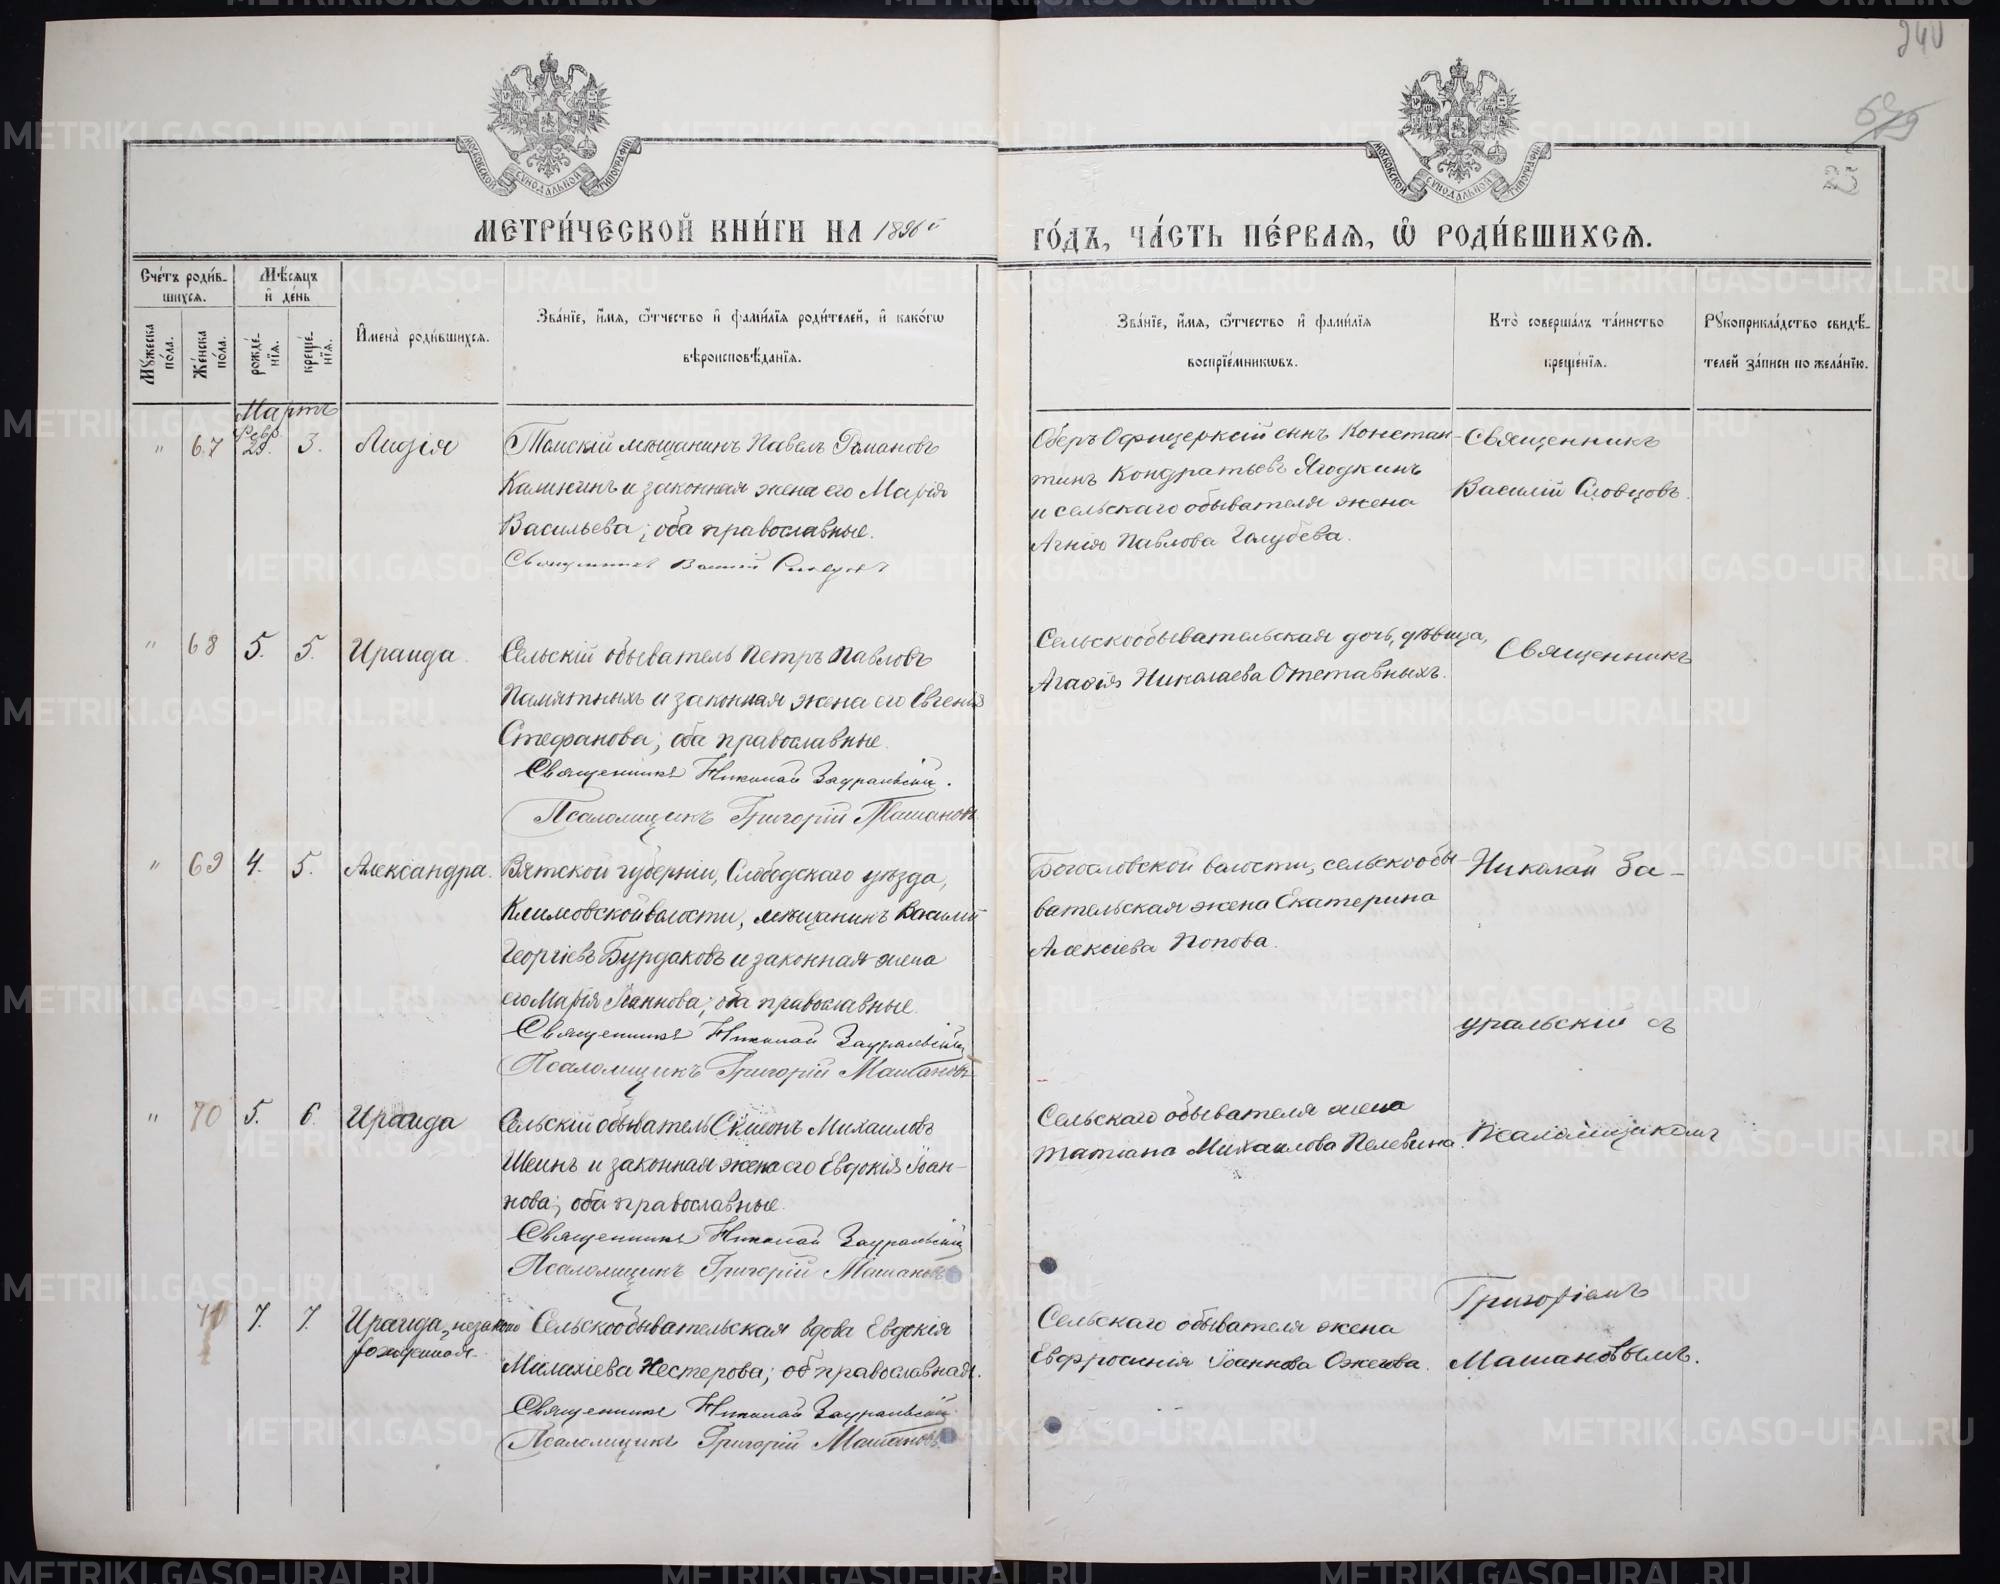 240
629
23
МОСКОВСКОЙ СѴНОДАЛЬНОЙ ТИПОГРАФІИ
МОСКОВСКОЙ СѴНОДАЛЬНОЙ ТИПОГРАФІИ
МЕТРИ́ЧЕСКОЙ КНИ́ГИ НА 1896й
ГО́ДЪ, ЧА́СТЬ ПЕ́РВАЯ, Ѡ РОДИ́ВШИХСЯ.
Сче́тъ роди́в-
шихся.
Мѣ́сяцъ
и҆ де́нь
Мꙋ́жеска по́ла.
Же́нска по́ла.
рожде́-
нїя.
креще́-
нїя.
И҆мена̀ роди́вшихся.
Зва́нїе, и҆́мя, ѻ҆́тчество и҆ фами́лїя роди́телей, и҆ како́гѡ
вѣроисповѣ́данїя.
Зва́нїе, и҆́мя, ѻ҆́тчество и҆ фами́лїя
воспрїе́мникѡвъ.
Кто̀ соверша́лъ та́инство
креще́нїя.
Рꙋкоприкла́дство свидѣ́-
телей за́писи по жела́нїю.
Мартъ
" 67 Февр. 29. 3. Лидія
Томскій мѣщанинъ Павелъ Романовъ
Калининъ и законная жена его Марія
Васильева; оба православные.
Священникъ Василій Словцовъ
Оберъ Офицерскій сынъ Констан-
тинъ Кондратьевъ Ягодкинъ
и сельскаго обывателя жена
Агнія Павлова Голубева.
Священникъ
Василій Словцовъ.
" 68 5. 5. Ираида.
Сельскій обыватель Петръ Павловъ
Памятныхъ и законная жена его Евгенія
Стефанова; оба православные.
Священникъ Николай Зауральскій.
Псаломщикъ Григорій Машановъ
Сельскообывательская дочь, дѣвица,
Агафія Николаева Отставныхъ.
Священникъ
" 69 4. 5. Александра.
Вятской губерніи, Слободскаго уѣзда,
Климовской волости, мѣщанинъ Василій
Георгіевъ Бурдаковъ и законная жена
его Марія Іоаннова; оба православные.
Священникъ Николай Зауральскій
Псаломщикъ Григорій Машановъ
Богословской волости, сельскообы-
вательская жена Екатерина
Алексіева Попова.
Николай За-
уральскій съ
" 70 5. 6. Ираида
Сельскій обыватель Симеонъ Михаиловъ
Шеинъ и законная жена его Евдокія Іоан-
нова; оба православные.
Священникъ Николай Зауральскій
Псаломщикъ Григорій Машановъ
Сельскаго обывателя жена
Татіана Михаилова Пелевина.
Псаломщикомъ
71 7. 7. Ираида, незаконно
рожденная.
Сельскообывательская вдова Евдокія
Нестерова; православная.
Священникъ Николай Зауральскій
Псаломщикъ Григорій Машановъ
Сельскаго обывателя жена
Евфросинія Іоаннова Ожегова.
Григоріемъ
Машановымъ.
METRIKI.GASO-URAL.RU